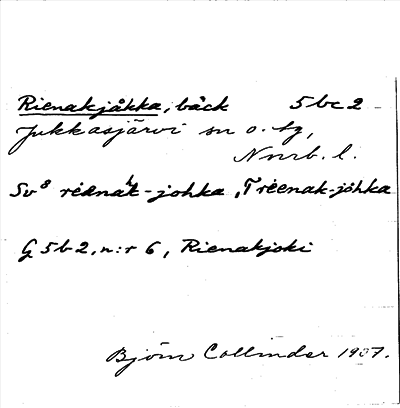 Rienakjåkka, bäck 5bc2
Jukkasjärvi sn o. tg,
Nnrb. l.
Sv⁸ riena̮k-johka, T rienak-johka
G 5b2, n:r 6, Rienakjoki
Björn Collinder 1907.